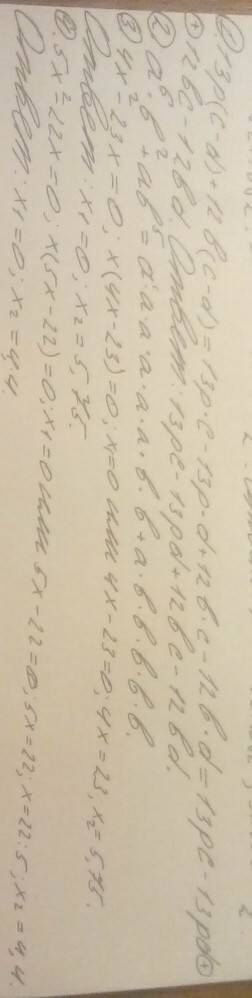 ① 13p(c-d)+12b(c-d)=13p·c-13p·d+12b·c-12b·d=13pc-13pd⊕
⊕12bc-12bd. Ответ: 13pc-13pd+12bc-12bd.
② a⁶·b²+ab⁵=a·a·a·a·a·a·b·b+a·b·b·b·b·b.
③ 4x²-23x=0; x(4x-23)=0; x=0 или 4x-23=0; 4x=23; x₂=5,75.
Ответ: x₁=0; x₂=5,75.
②. 5x²-22x=0; x(5x-22)=0; x₁=0 или 5x-22=0; 5x=22; x=22:5; x₂=4,4.
Ответ: x₁=0; x₂=4,4.